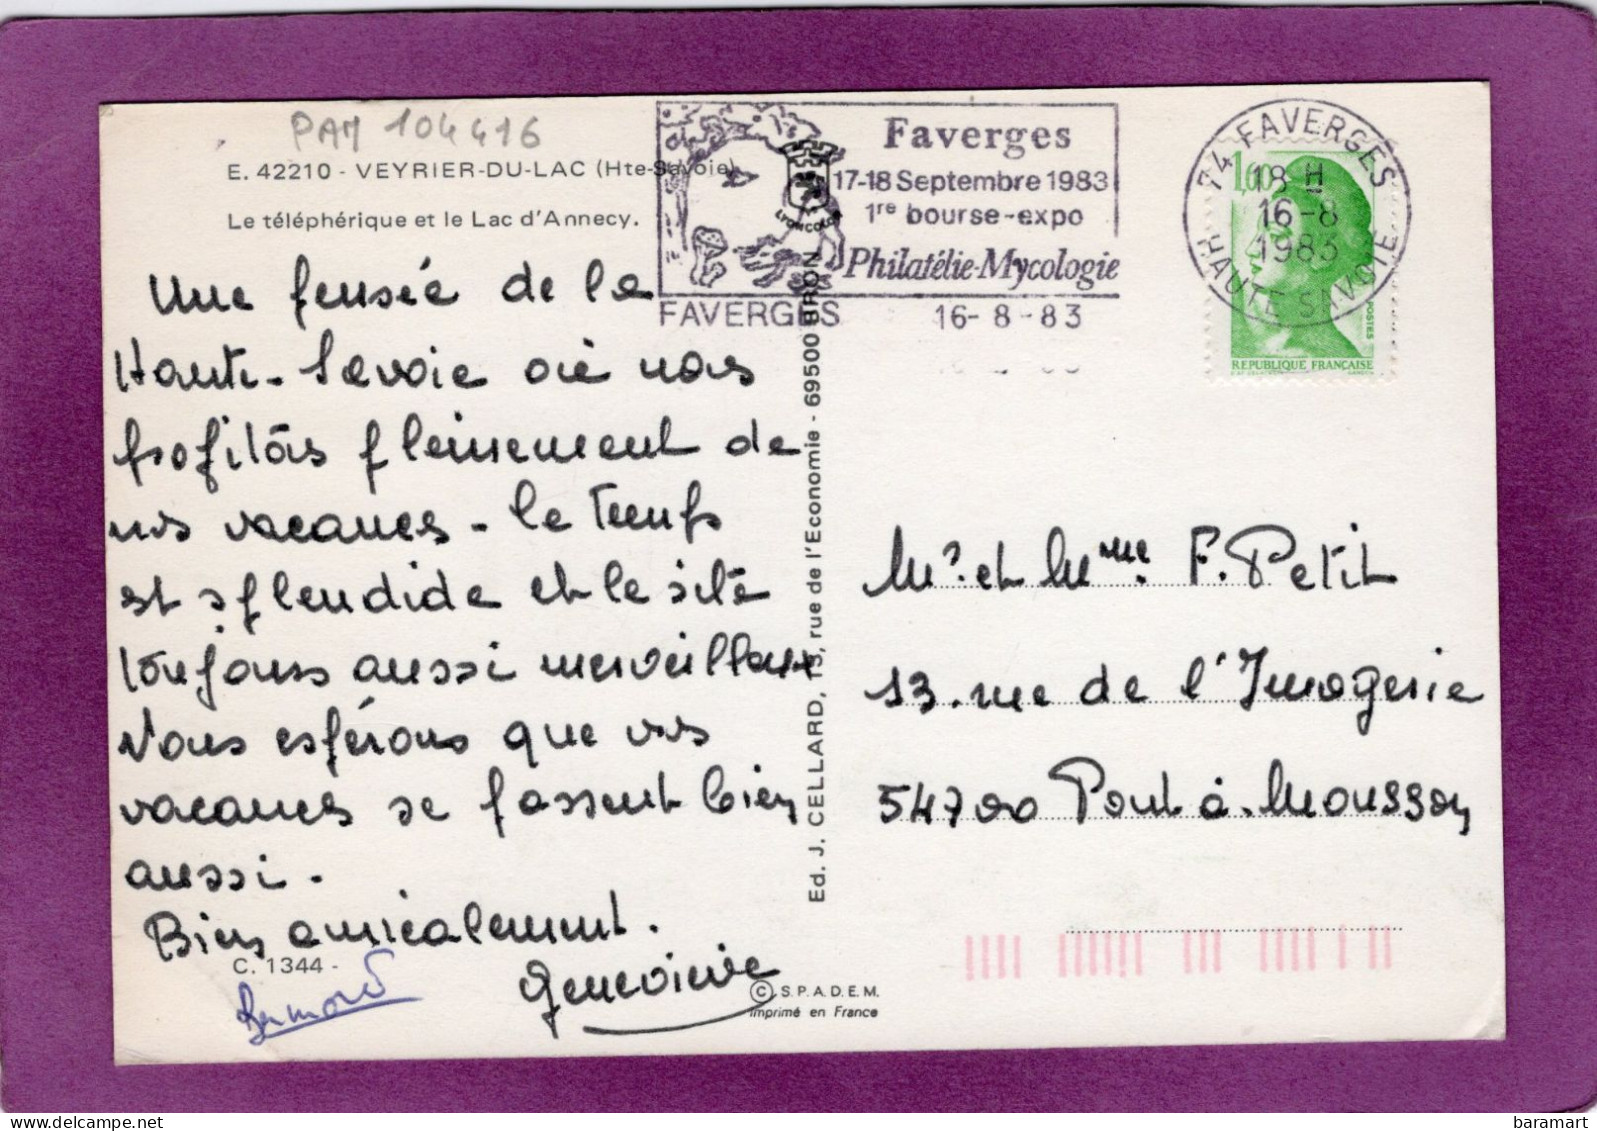 PAM 104416
E. 42210 - VEYRIER-DU-LAC (Hte-Savoie)
Le téléphérique et le Lac d'Annecy.
Faverges
17-18 Septembre 1983
1re bourse-expo
Philatélie-Mycologie
LYONCOLOR
FAVERGES 16-8-83
74 FAVERGES
18 H
16-8
1983
HAUTE SAVOIE
1,60
POSTES
REPUBLIQUE FRANÇAISE
Une pensée de la
Haute-Savoie où nous
profitons pleinement de
nos vacances - le temps
est splendide et le site
toujours aussi merveilleux
Nous espérons que vos
vacances se passent bien
aussi.
Bien amicalement.
Geneviève
Bernard
C. 1344 -
Ed. J. CELLARD, 15, rue de l'Economie - 69500 BRON
Mr. et Mme. F. Petit
13. rue de l'Imagerie
54700 Pont à Mousson
© S.P.A.D.E.M.
Imprimé en France
baramart